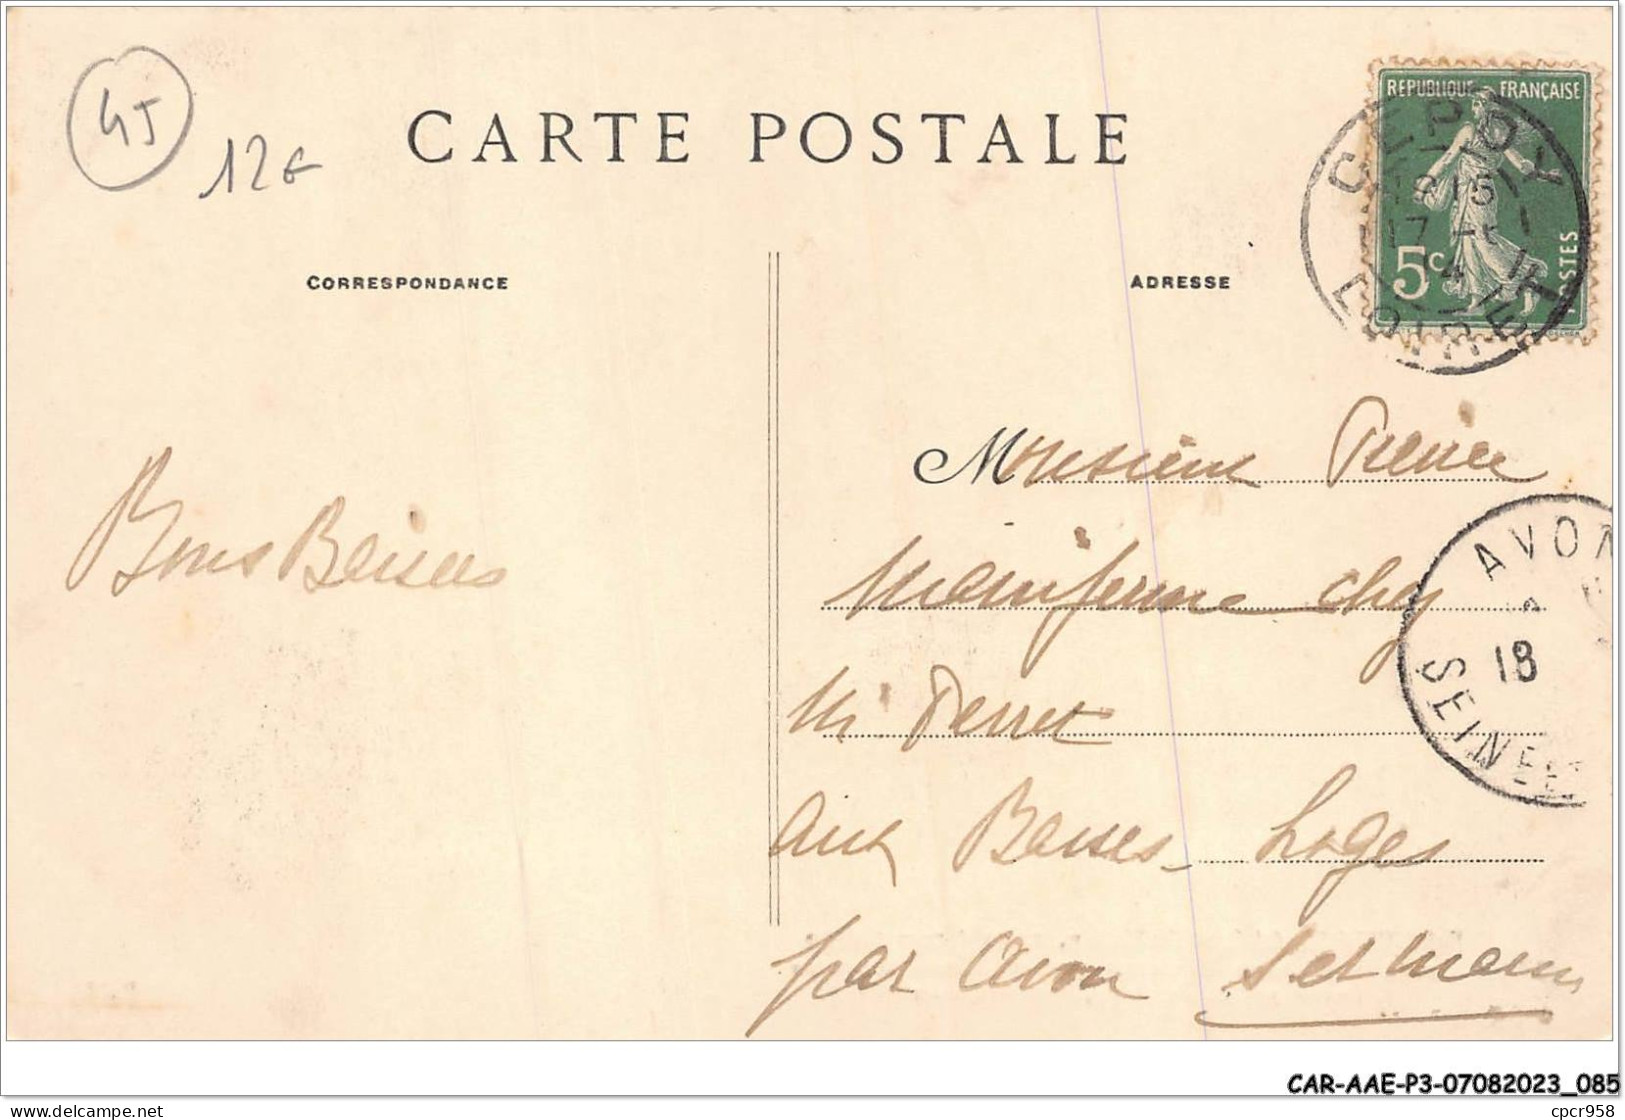 45
12€
CARTE POSTALE
CORRESPONDANCE
ADRESSE
REPUBLIQUE FRANÇAISE
5c
POSTES
CEPOY
18 15
17 -
14
LOIRET
Bons Baisers
Monsieur Pierre
chez
Mr Perret
aux Basses-Loges
par Avon S et Marne
AVON
18
SEINE ET
CAR-AAE-P3-07082023_085
delcampe.net
cpcr958